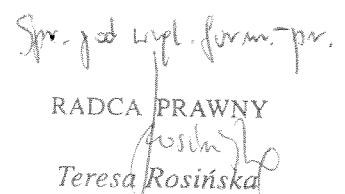 Spr. pod wzgl. form.-pr.
RADCA PRAWNY
Teresa Rosińska